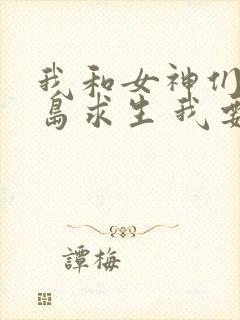 我和女神们
岛求生我要
譚梅